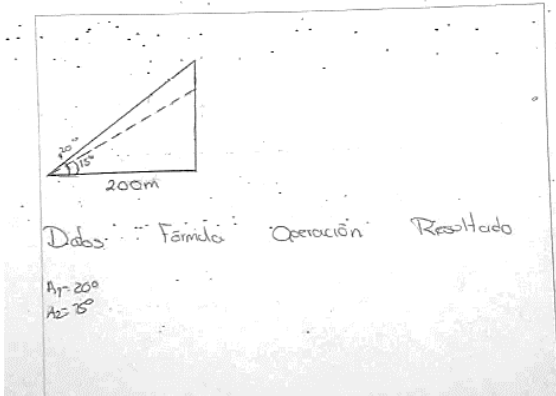 20°
15°
200m
Datos Fórmula Operación Resultado
A1= 20°
A2= 15°